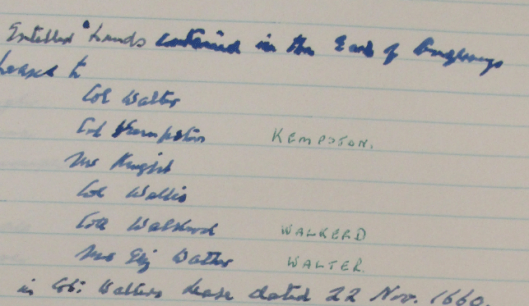 Entitled "Lands contained in the Earl of
Leases to
Col Walter
Col Kempston KEMPSTON.
Mr Knight
Col Wallis
Col WALKERD
Mrs Eliz Walter WALTER.
in Col: Walters lease dated 22 Nov. 1660.